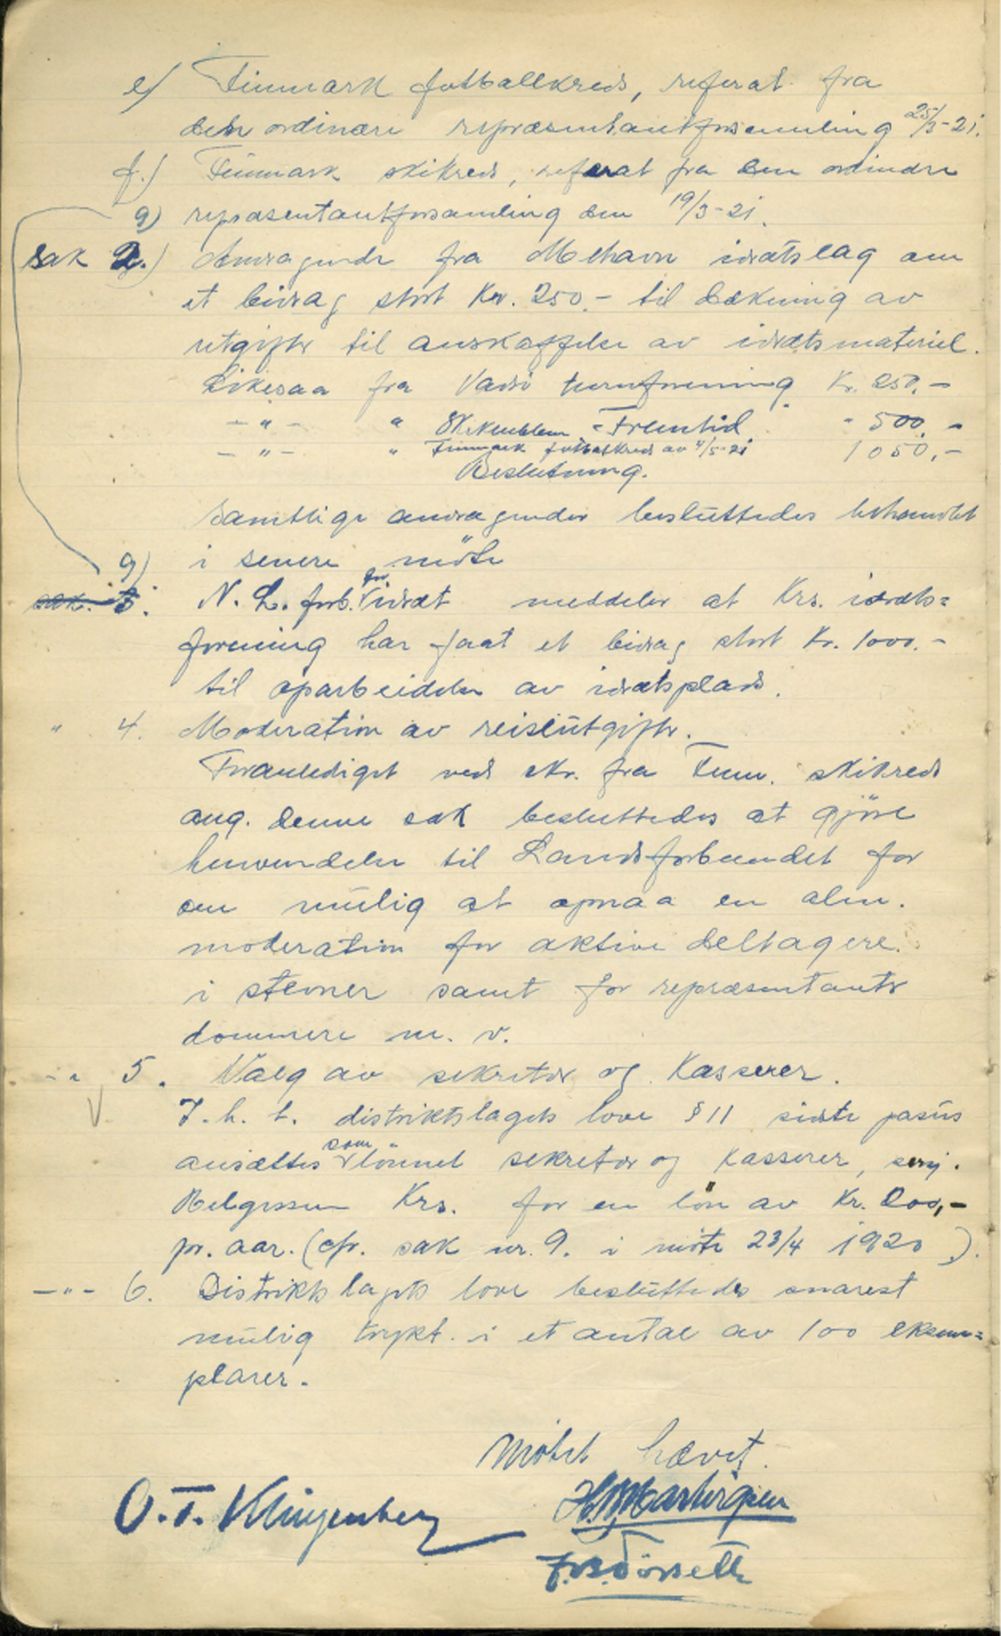 e) Finmark fotballkreds, referat fra
den ordinære repræsentantforsamling 25/3-21.
f.) Finmark skikreds, referat fra den ordinære
g) repræsentantforsamling den 19/3-21.
sak 2.) Andragende fra Mehavn idrætslag om
et bidrag stort Kr. 250.- til dækning av
utgifter til anskaffelse av idrætsmateriel.
Likesaa fra Vadsö turnforening Kr. 250,-
- " - " Skiklubben "Fremtid" - 500,-
- " - " Finmark fotbalkreds av 4/5-21 1050,-
Beslutning.
Samtlige andragender besluttedes behandlet
i senere möte
g)
sak. 3. N. L. forb. for idræt meddeler at Krs. idræts=
forening har faat et bidrag stort Kr. 1000.-
til oparbeidelse av idrætsplads.
" 4. Moderation av reiseutgifter.
Foranlediget ved skr. fra Finm. skikreds
ang. denne sak besluttedes at gjöre
henvendelse til Landsforbundet for
om mulig at opnaa en alm.
moderation for aktive deltagere
i stevner samt for repræsentanter
dommere m. v.
- " 5. Valg av sekretær og Kasserer.
I. h. t. distriktslagets love § 11 sidste pasus
ansættes som lönnet sekretær og Kasserer,
Helgesen Krs. for en lön av Kr. 200,-
pr. aar. (cfr. sak nr. 9. i möte 23/4 1920).
- " - 6. Distriktslagets love besluttedes snarest
mulig trykt i et antal av 100 eksem=
plarer.
Mötet hævet.
O. T. Klingenberg